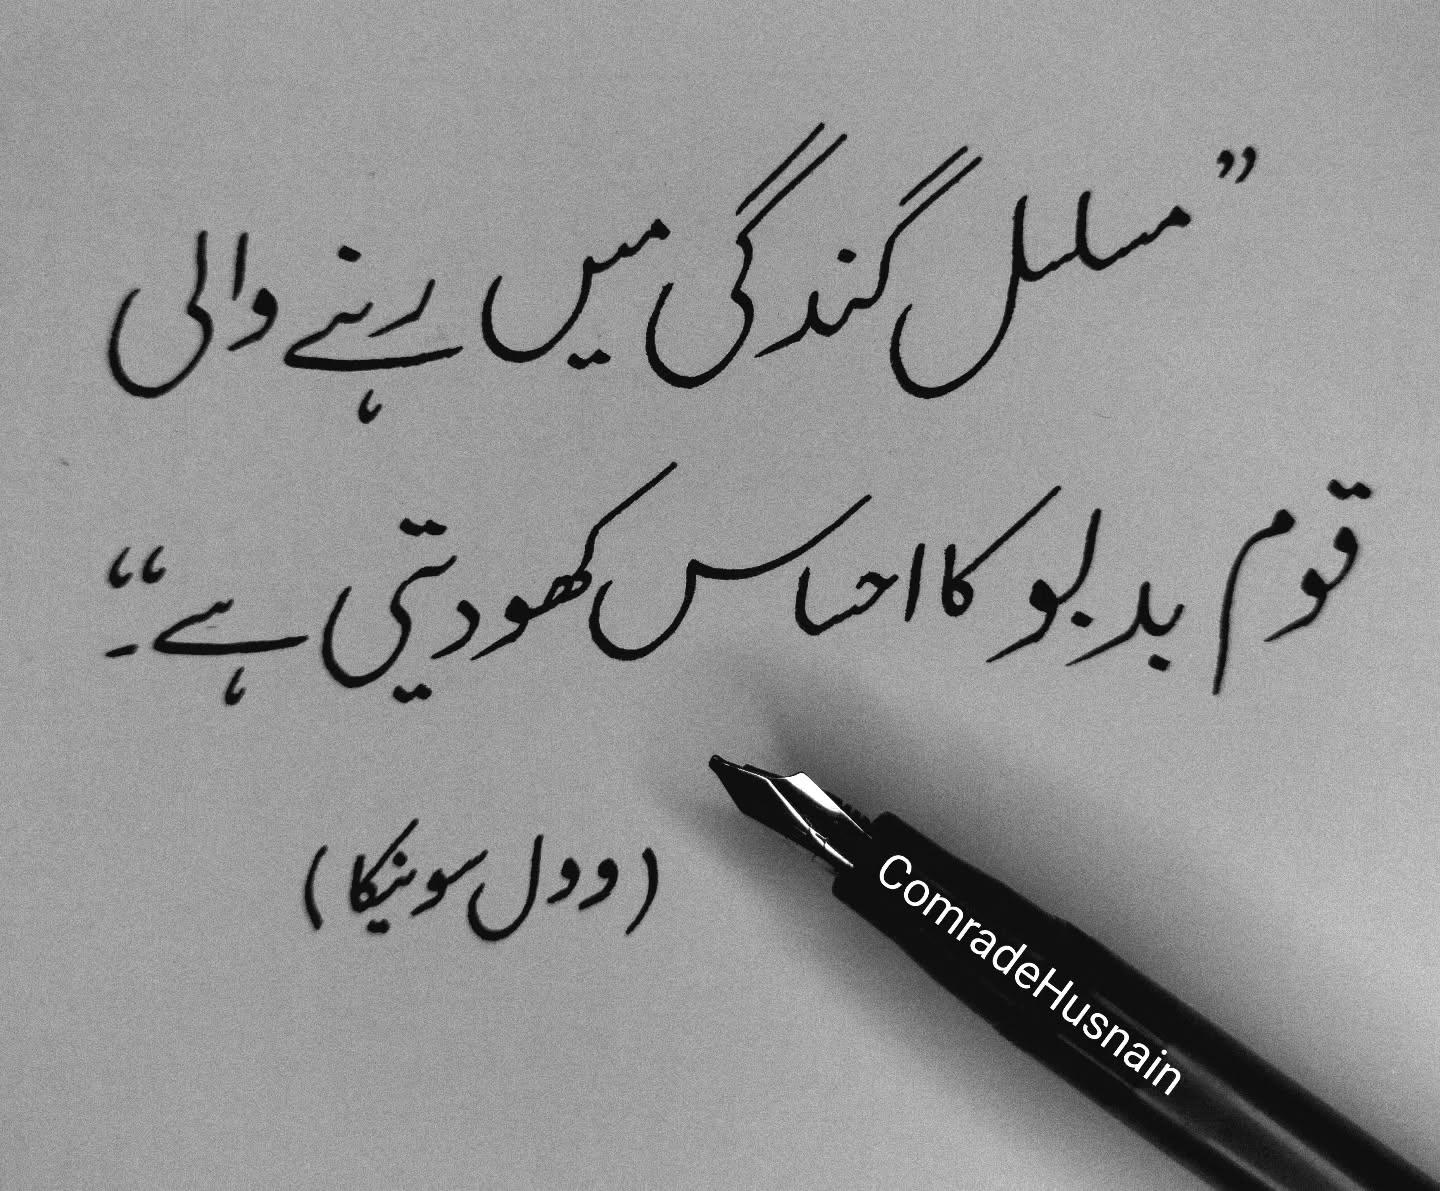 ”مسلسل گندگی میں رہنے والی
قوم بدبو کا احساس کھو دیتی ہے۔“
(وول سوئنیکا)
ComradeHusnain